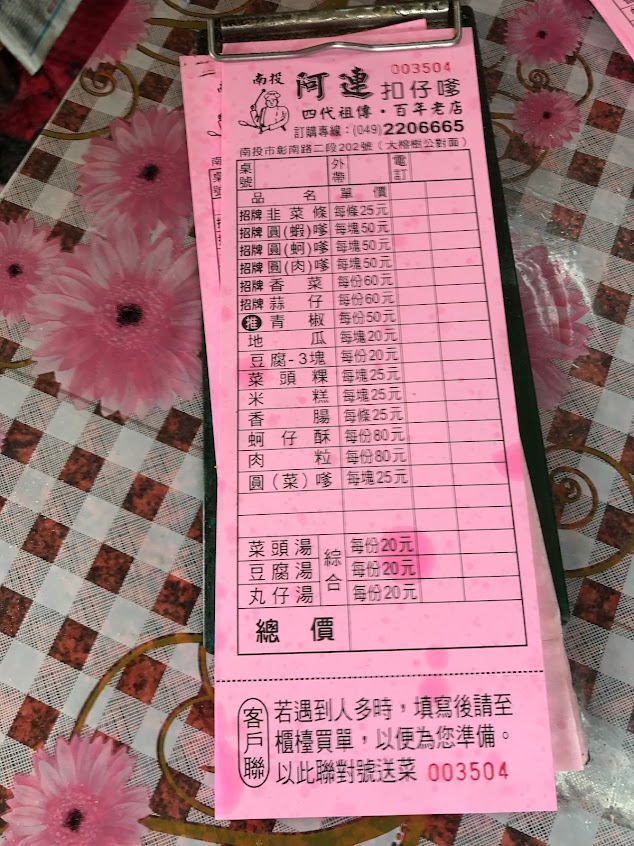 003504
南投 阿連 扣仔嗲
四代祖傳・百年老店
訂購專線：(049)2206665
南投市彰南路二段202號（大榕樹公對面）
桌號 外帶 電訂
品名 單價
招牌 韭菜條 每條25元
招牌 圓(蝦)嗲 每塊50元
招牌 圓(蚵)嗲 每塊50元
招牌 圓(肉)嗲 每塊50元
招牌 香菜 每份60元
招牌 蒜仔 每份60元
推 青椒 每份50元
地瓜 每塊20元
豆腐-3塊 每份20元
菜頭粿 每塊25元
米糕 每塊25元
香腸 每條25元
蚵仔酥 每份80元
肉粒 每份80元
圓(菜)嗲 每塊25元
菜頭湯 綜合 每份20元
豆腐湯 每份20元
丸仔湯 每份20元
總價
客戶聯
若遇到人多時，填寫後請至
櫃檯買單，以便為您準備。
以此聯對號送菜 003504